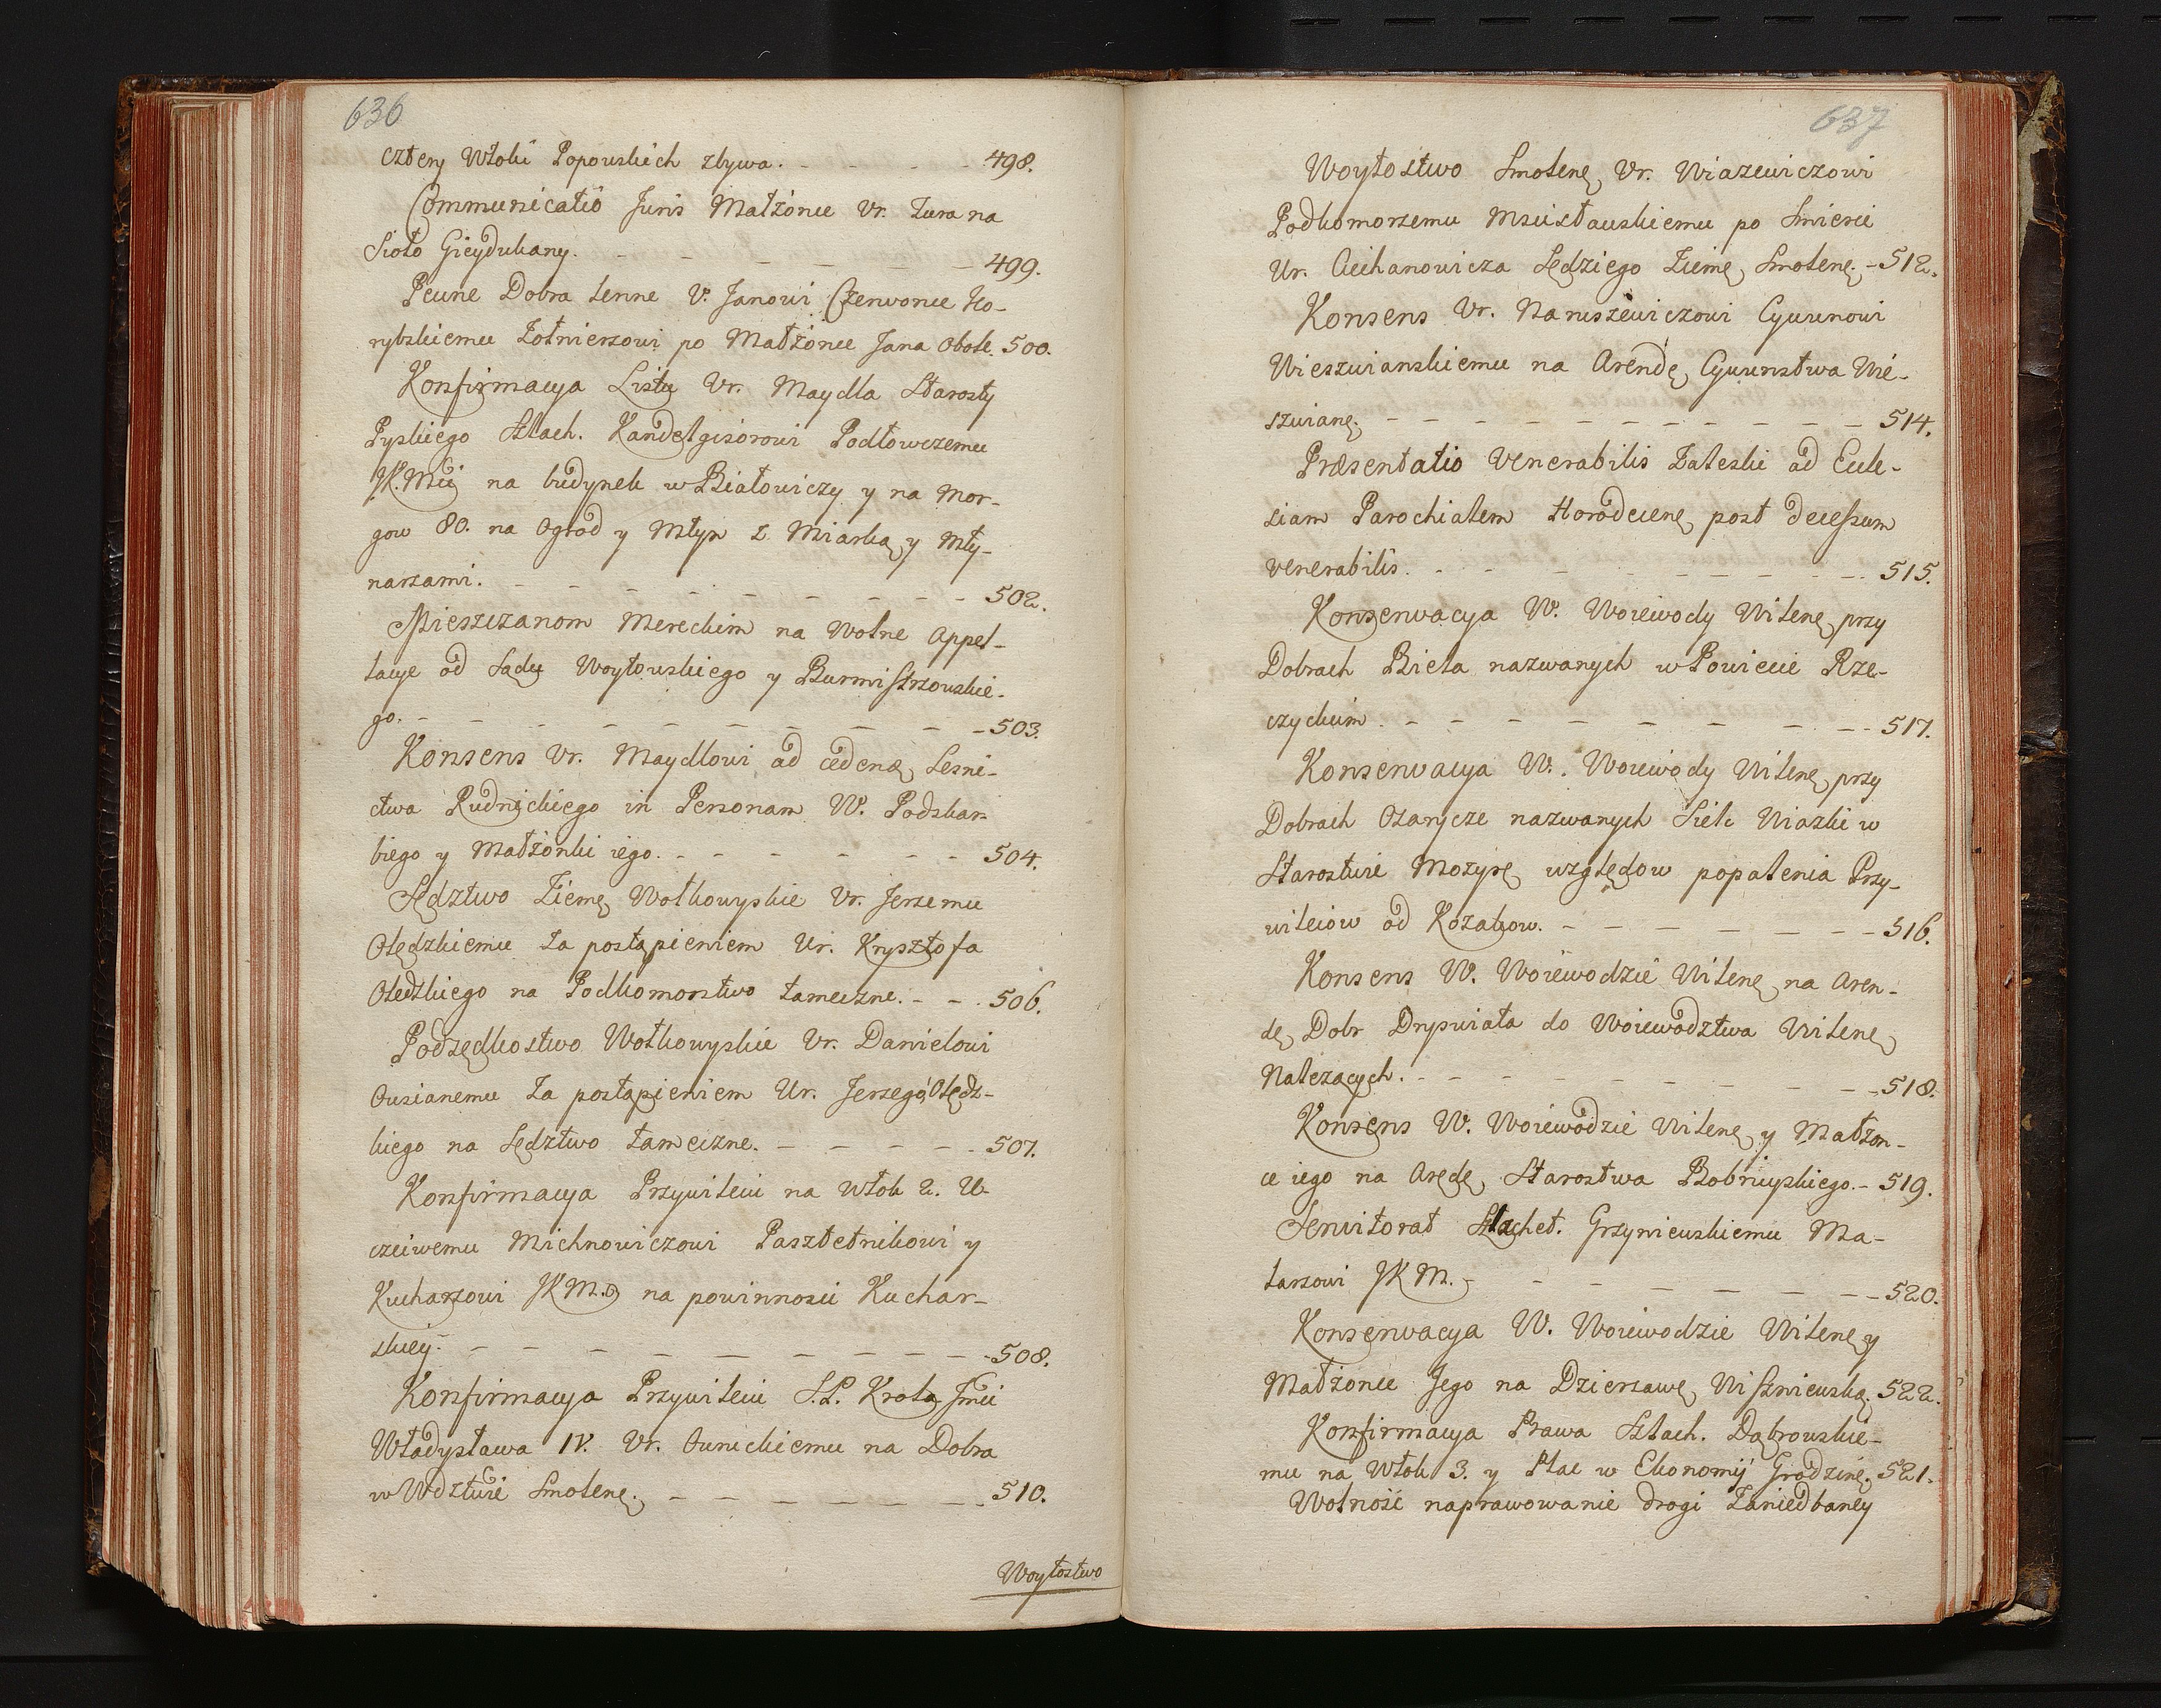 636
cztery Włoki Popowskich zbywa. - - - - 498.
Communicatio Juris Małżonce Ur. Zura na
Sioło Gieydukany. - - - - - 499.
Pewne Dobra Lenne U. Janowi Czerwonce Ko-
rybskiemu Żołnierzowi po Małżonce Jana Obole. 500.
Konfirmacya Listu Ur. Maydla Starosty
Pyskiego Szlach. Kandelgisorowi Podłowczemu
JK.Mci na budynek w Białowiczy y na mor-
gow 80. na Ogrod y Młyn z Miarką y Mły-
narzami. - - - - - - - - 502.
Mieszczanom Mereckim na Wolne Appel-
lacye od Sądu Woytowskiego y Burmistrzowskie-
go. - - - - - - - - - 503.
Konsens Ur. Maydlowi ad cedendę Lesni-
ctwa Rudnickiego in Personam W. Podskar-
biego y Małżonki iego. - - - - - - 504.
Sędztwo Ziemę Wołkowyskie Ur. Jerzemu
Olędzkiemu za postąpieniem Ur. Krysztofa
Olędzkiego na Podkomorstwo tameczne. - - . 506.
Podsędkostwo Wołkowyskie Ur. Danielowi
Ousianemu za postąpieniem Ur. Jerzego Olędz-
kiego na Sędztwo tameczne. - - - - - 507.
Konfirmacya Przywileiu na Włok 2. U-
czciwemu Michnowiczowi Pasztetnikowi y
Kucharzowi JKM. na powinnosci Kuchar-
skiey. - - - - - - - - - 508.
Konfirmacya Przywileiu S.P. Krola Jmci
Władysława IV. Ur. Ouruckiemu na Dobra
w Wdztwie Smolenę. - - - - - - - 510.
Woytostwo
637
Woytostwo Smolenę Ur. Wiazewiczowi
Podkomorzemu Mscisławskiemu po Smierci
Ur. Ciechanowicza Sędziego Ziemę Smolenę. - 512.
Konsens Ur. Naruszewiczowi Cywunowi
Wieszwianskiemu na Arendę Cywunstwa Wie-
szwianę. - - - - - - - - - 514.
Præsentatio Venerabilis Zaleski ad Eccle-
siam Parochialem Horodecenę post decessum
venerabilis. - - - - - - - - 515.
Konserwacya W. Woiewody Wilenę przy
Dobrach Biela nazwanych w Powiecie Rze-
czyckim. - - - - - - - - 517.
Konserwacya W. Woiewody Wilenę przy
Dobrach Ozarycze nazwanych Siele Wiazki w
Starostwie Mozyrę względow popalenia Przy-
wileiow od Kozakow. - - - - - - - 516.
Konsens W. Woiewodzie Wilenę na Aren-
dę Dobr Dryswiata do Woiewodztwa Wilenę
Należących. - - - - - - - - 518.
Konsens W. Woiewodzie Wilenę y Małżon-
ce iego na Arędę Starostwa Bobruyskiego. - 519.
Serwitorat Szlachet. Grzyniewskiemu Ma-
larzowi JKM. - - - - - - - 520.
Konserwacya W. Woiewodzie Wilenę y
Małżonce Jego na Dzierzawę Wiszniewską. 522.
Konfirmacya Prawa Szlach. Dąbrowskie-
mu na Włok 3. y Plac w Ekonomij Grodzinę. 521.
Wolność naprawowanie drogi Zaniedbaney